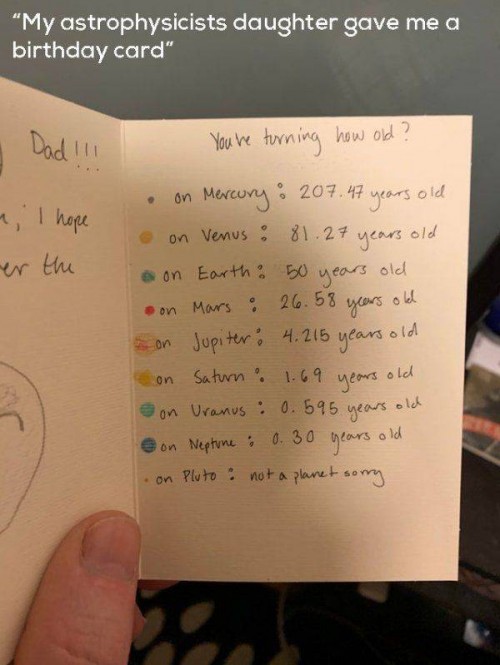 “My astrophysicists daughter gave me a
birthday card”
Dad!!!
I hope
the
You're turning how old?
on Mercury: 207.47 years old
on Venus: 81.27 years old
on Earth: 50 years old
on Mars: 26.58 years old
on Jupiter: 4.215 years old
on Saturn: 1.69 years old
on Uranus: 0.595 years old
on Neptune: 0.30 years old
on Pluto: not a planet sorry